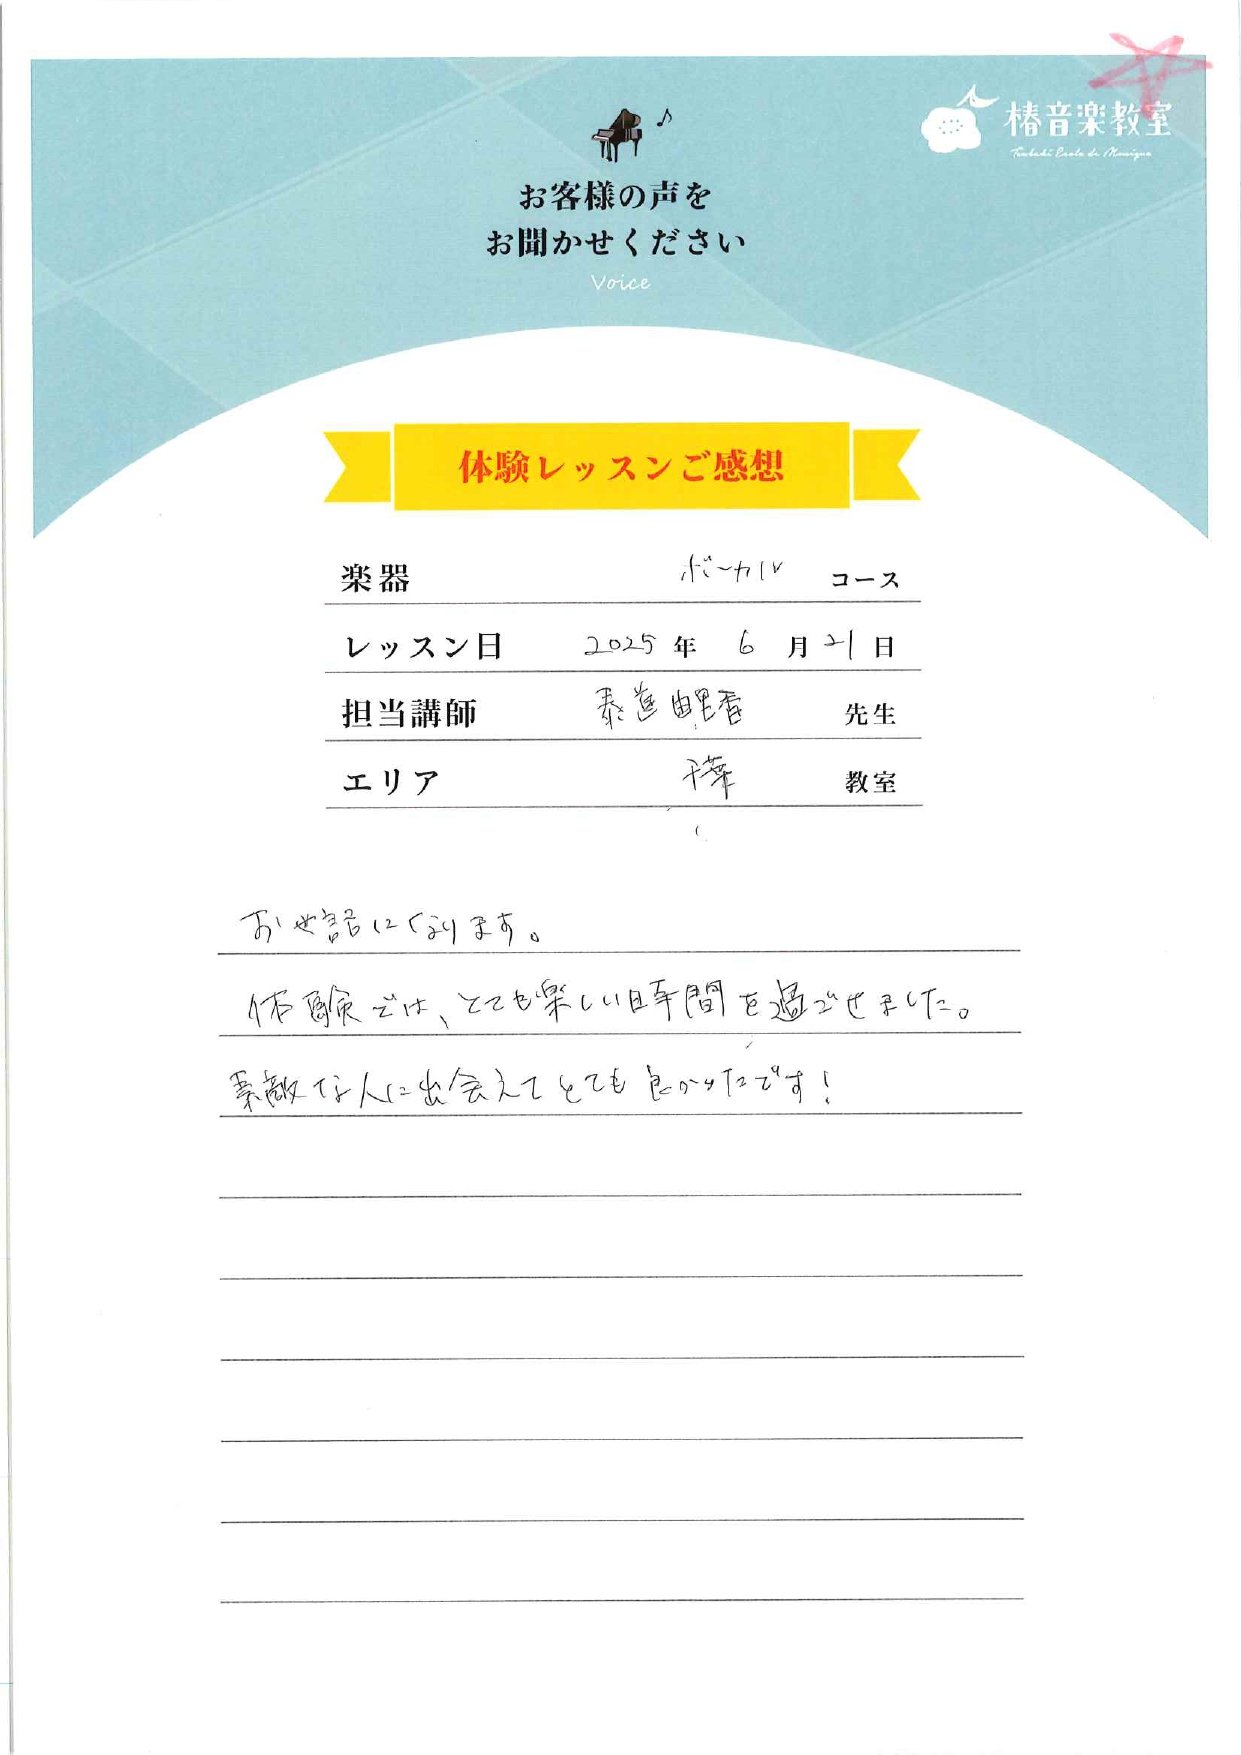 椿音楽教室
Tsubaki Ecole de Musique
お客様の声を
お聞かせください
Voice
体験レッスンご感想
楽器 ボーカル コース
レッスン日 2025 年 6 月 21 日
担当講師 泰進由里香 先生
エリア 千葉 教室
お世話になります。
体験では、とても楽しい時間を過ごせました。
素敵な人に出会えてとても良かったです！